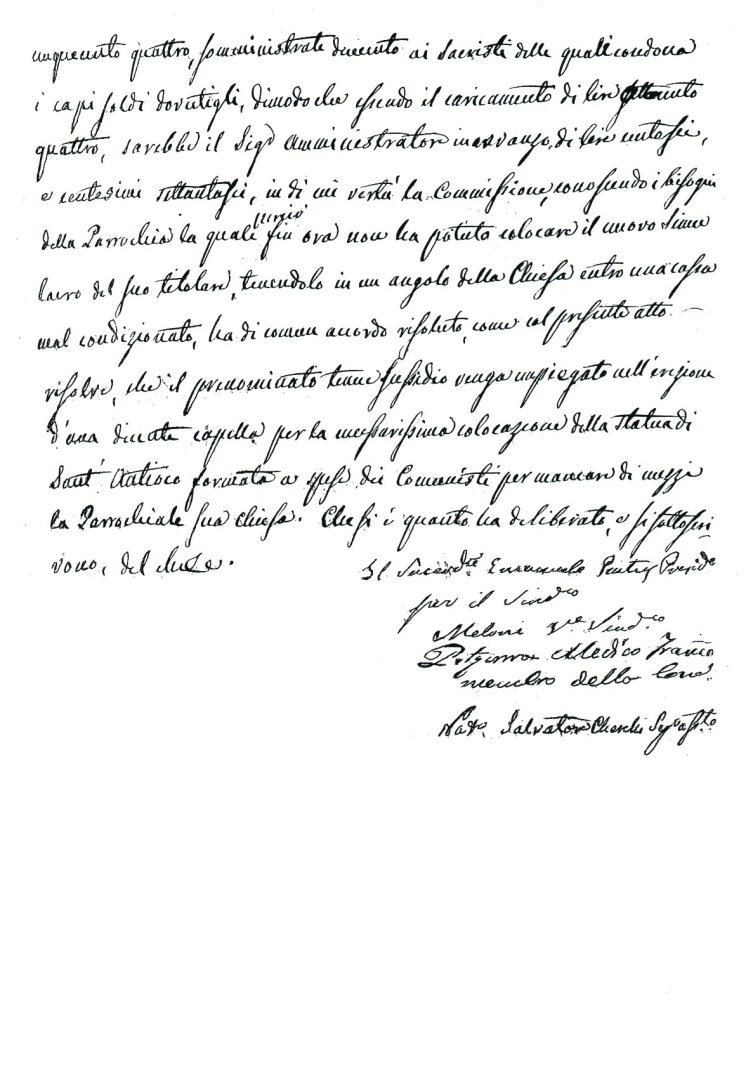 cinquecento quattro, somministrate ducento ai sacristi delle quali condona
i capi soldi dovutigli, dimodoche essendo il caricamento di lire settecento
quattro, sarebbe il Sigr Amministratore in avvanzo, di lire centosei,
e centesimi settantasei, in di cui vertù la Commissione, conoscendo i bisogni
della Parrochia la quale perciò fin ora non ha potuto colocare il nuovo Simu
lacro del suo titolare, tenendolo in un angolo della Chiesa entro una cassa
mal condizionato, ha di comun accordo risoluto, come col presente atto —
risolve, che il prenominato tenue sussidio venga impiegato nell'erezione
d'una decente capella per la necessarissima colocazione della statua di
Sant' Antioco formata a spese dei Comunisti per mancare di mezzi
la Parrochiale sua chiesa. Che si è quanto ha deliberato, e si sottoscri
vono, del che.
Il Sacerdte Emanuele Presidte
per il Sindco
Meloni Ve Sindco
Medico Franco
membro della Cone
Salvatore Cherchi Segro